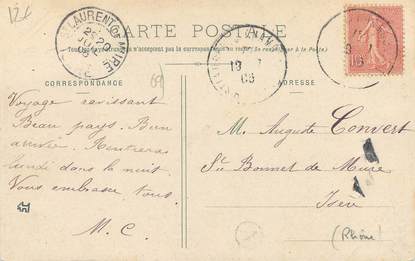 12€
CARTE POSTALE
Tous les pays étrangers n'acceptent pas la correspondance au recto (Se renseigner à la Poste)
CORRESPONDANCE
ADRESSE
69
Voyage ravissant
Beau pays. Bien
arrivée. Rentrerai
lundi dans la nuit.
Vous embrasse tous.
M. C.
M. Auguste Convert
St Bonnet de Mure
Isère
(Rhône)
ST LAURENT DE MURE